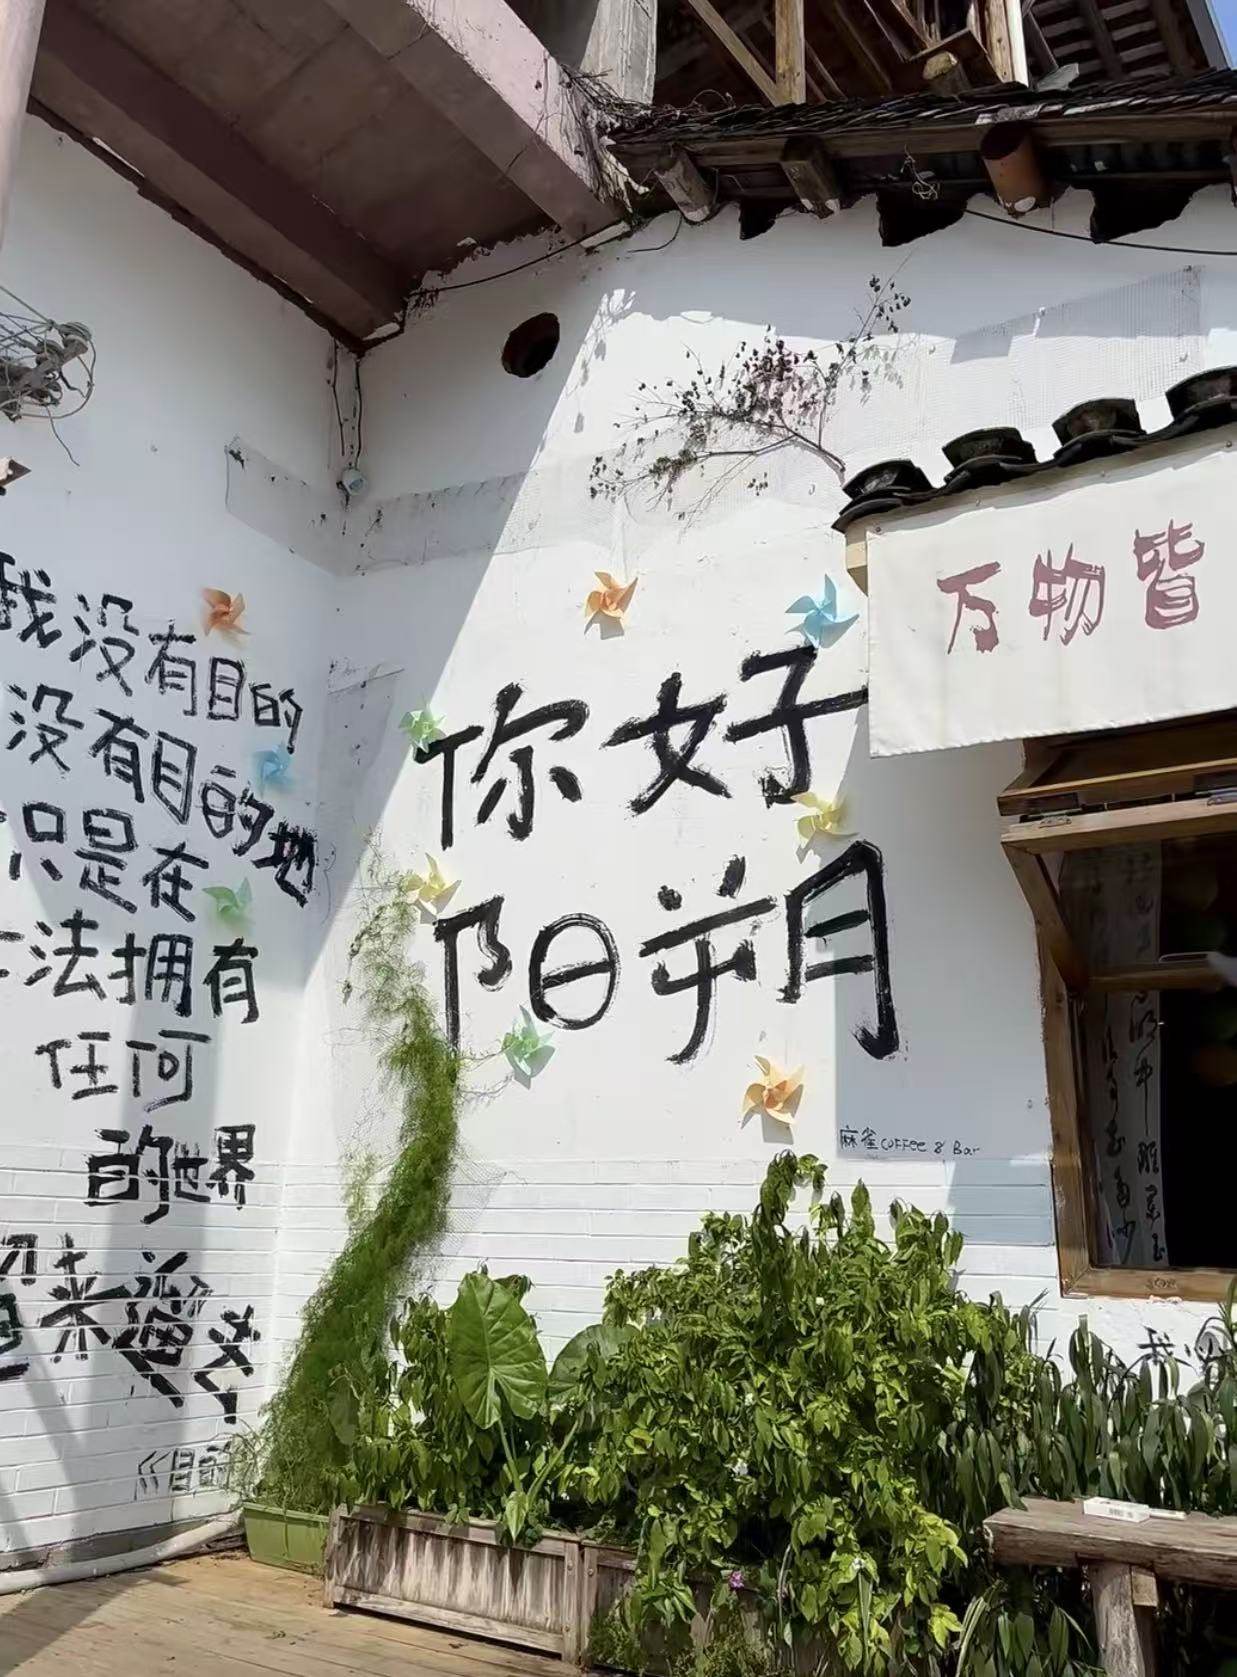 我没有目的
没有目的地
只是在
法拥有
任何
的世界
你好
阳朔
麻雀coffee & Bar
万物皆